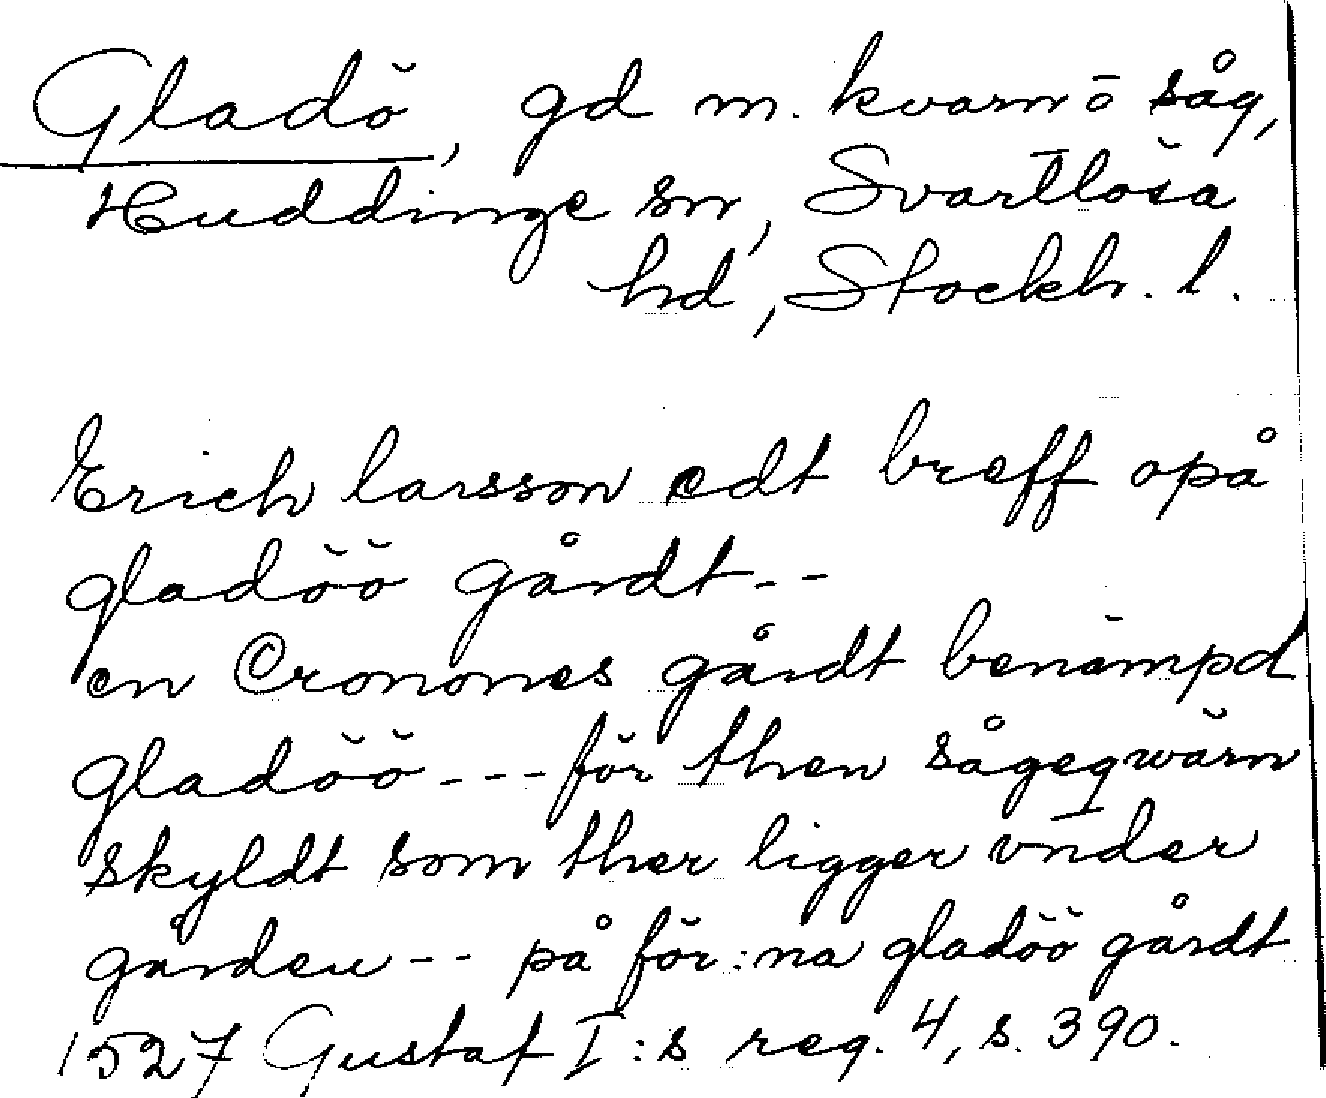 Gladö, gd m. kvarn o såg,
Huddinge sn, Svartlösa
hd, Stockh. l.
Erich larsson edt breff opå
gladöö gårdt--
en Cronones gårdt benämpd
gladöö---för then sågeqwärn
skyldt som ther ligger vnder
gården-- på för:na gladöö gårdt
1527 Gustaf I:s reg. 4, s. 390.